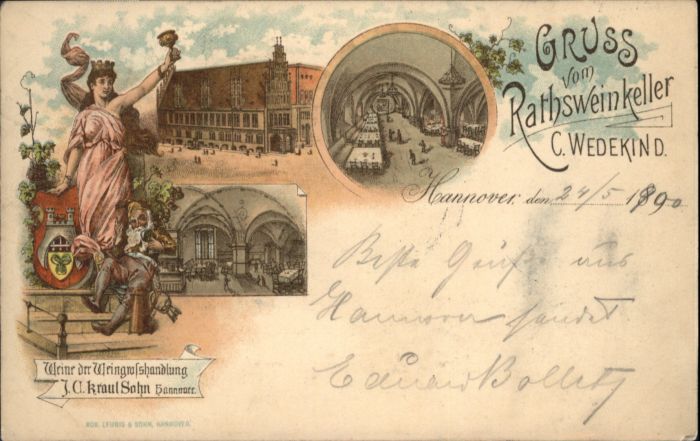 GRUSS
vom
Rathsweinkeller
C. WEDEKIND.
Hannover, den 24/5 1890
Beste Grüße aus
Hannover sendet
Eduard
Weine der Weingrosshandlung
J. C. Kraul Sohn Hannover.
ROB. LEUNIS & SOHN, HANNOVER.